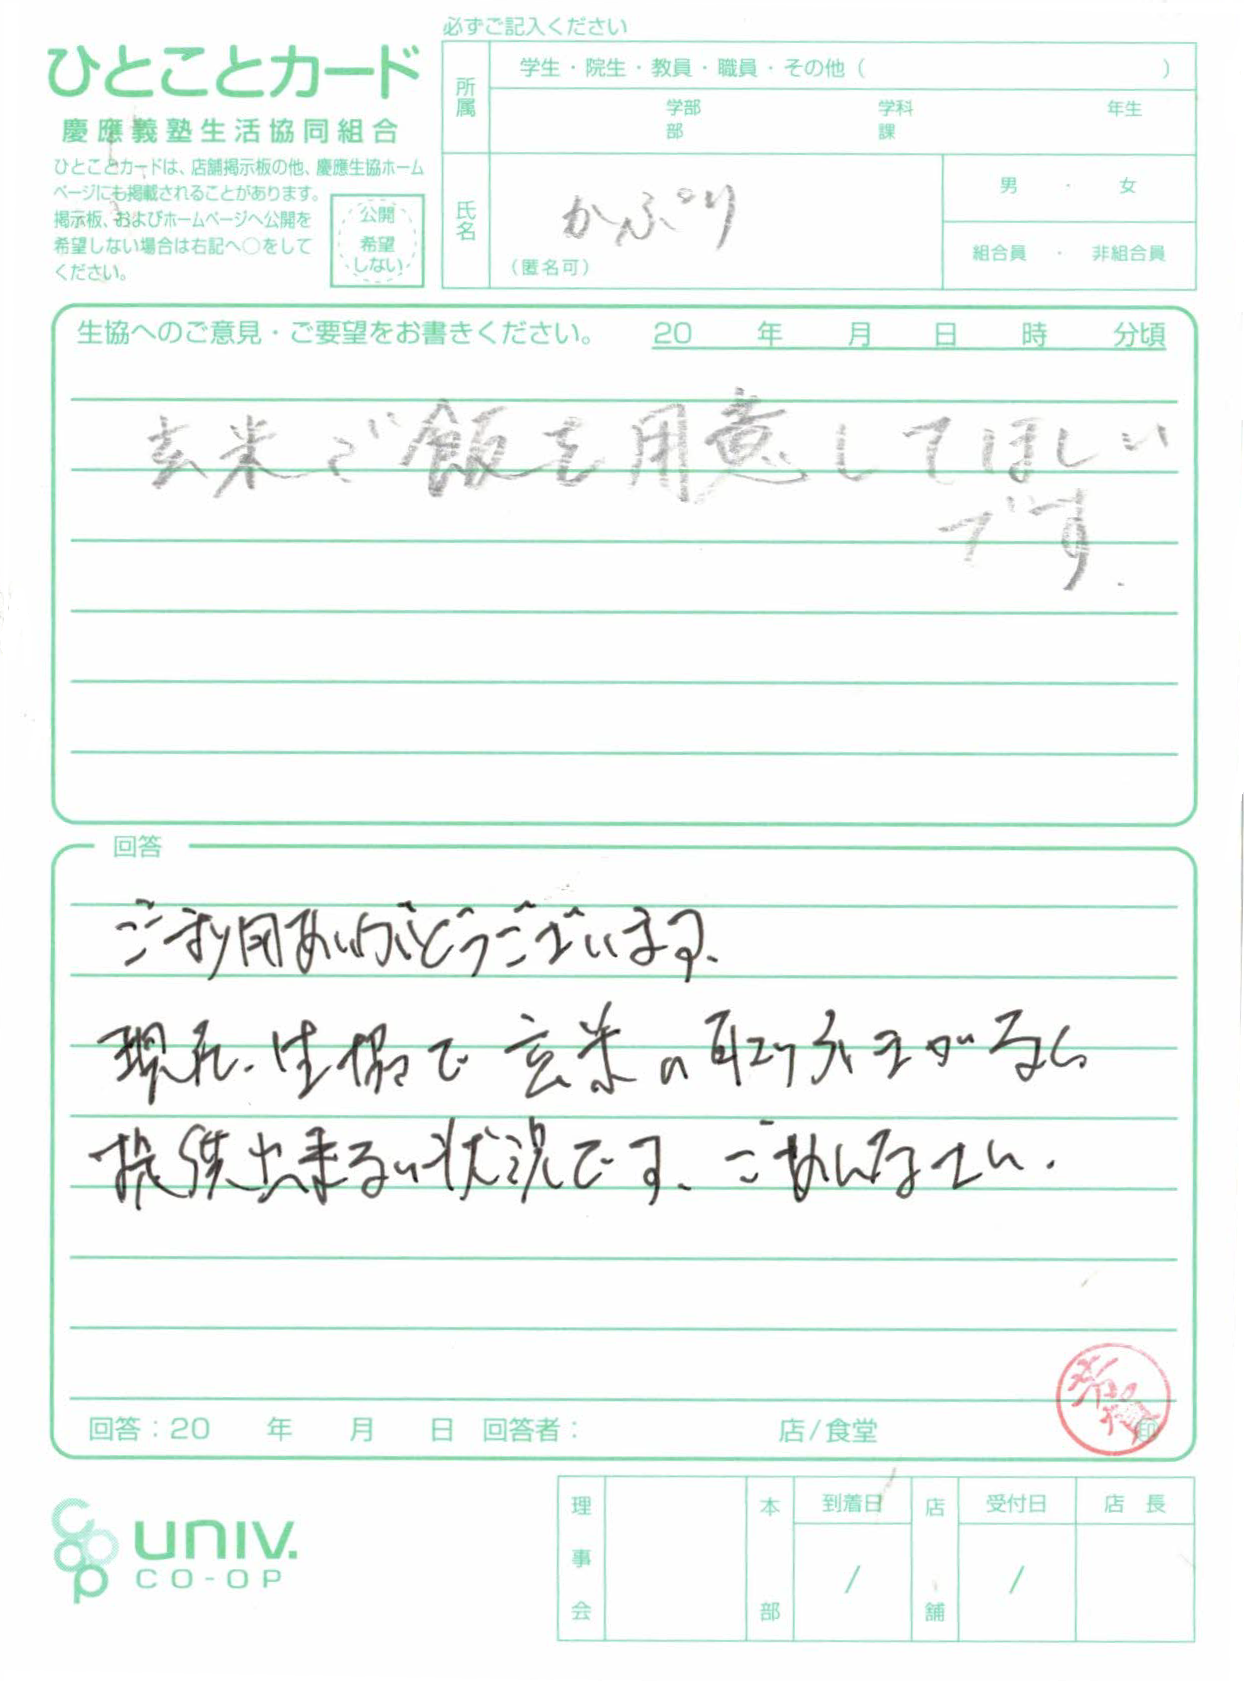 必ずご記入ください
ひとことカード
慶應義塾生活協同組合
ひとことカードは、店舗掲示板の他、慶應生協ホーム
ページにも掲載されることがあります。
掲示板、およびホームページへ公開を
希望しない場合は右記へ○をして
ください。
公開
希望
しない
所属
学生・院生・教員・職員・その他（　　　）
学部　学科　年生
部　課
氏名
かぷり
（匿名可）
男・女
組合員・非組合員
生協へのご意見・ご要望をお書きください。 20　年　月　日　時　分頃
玄米ご飯を用意してほしい
です.
回答
ご利用ありがとうございます、
現在、生協で玄米の取り扱いがなく
提供出来ない状況です、ごめんなさい.
回答：20　年　月　日　回答者：　店/食堂　印
理事会　本部　到着日　店舗　受付日　店長
/　/
coop univ.
CO-OP